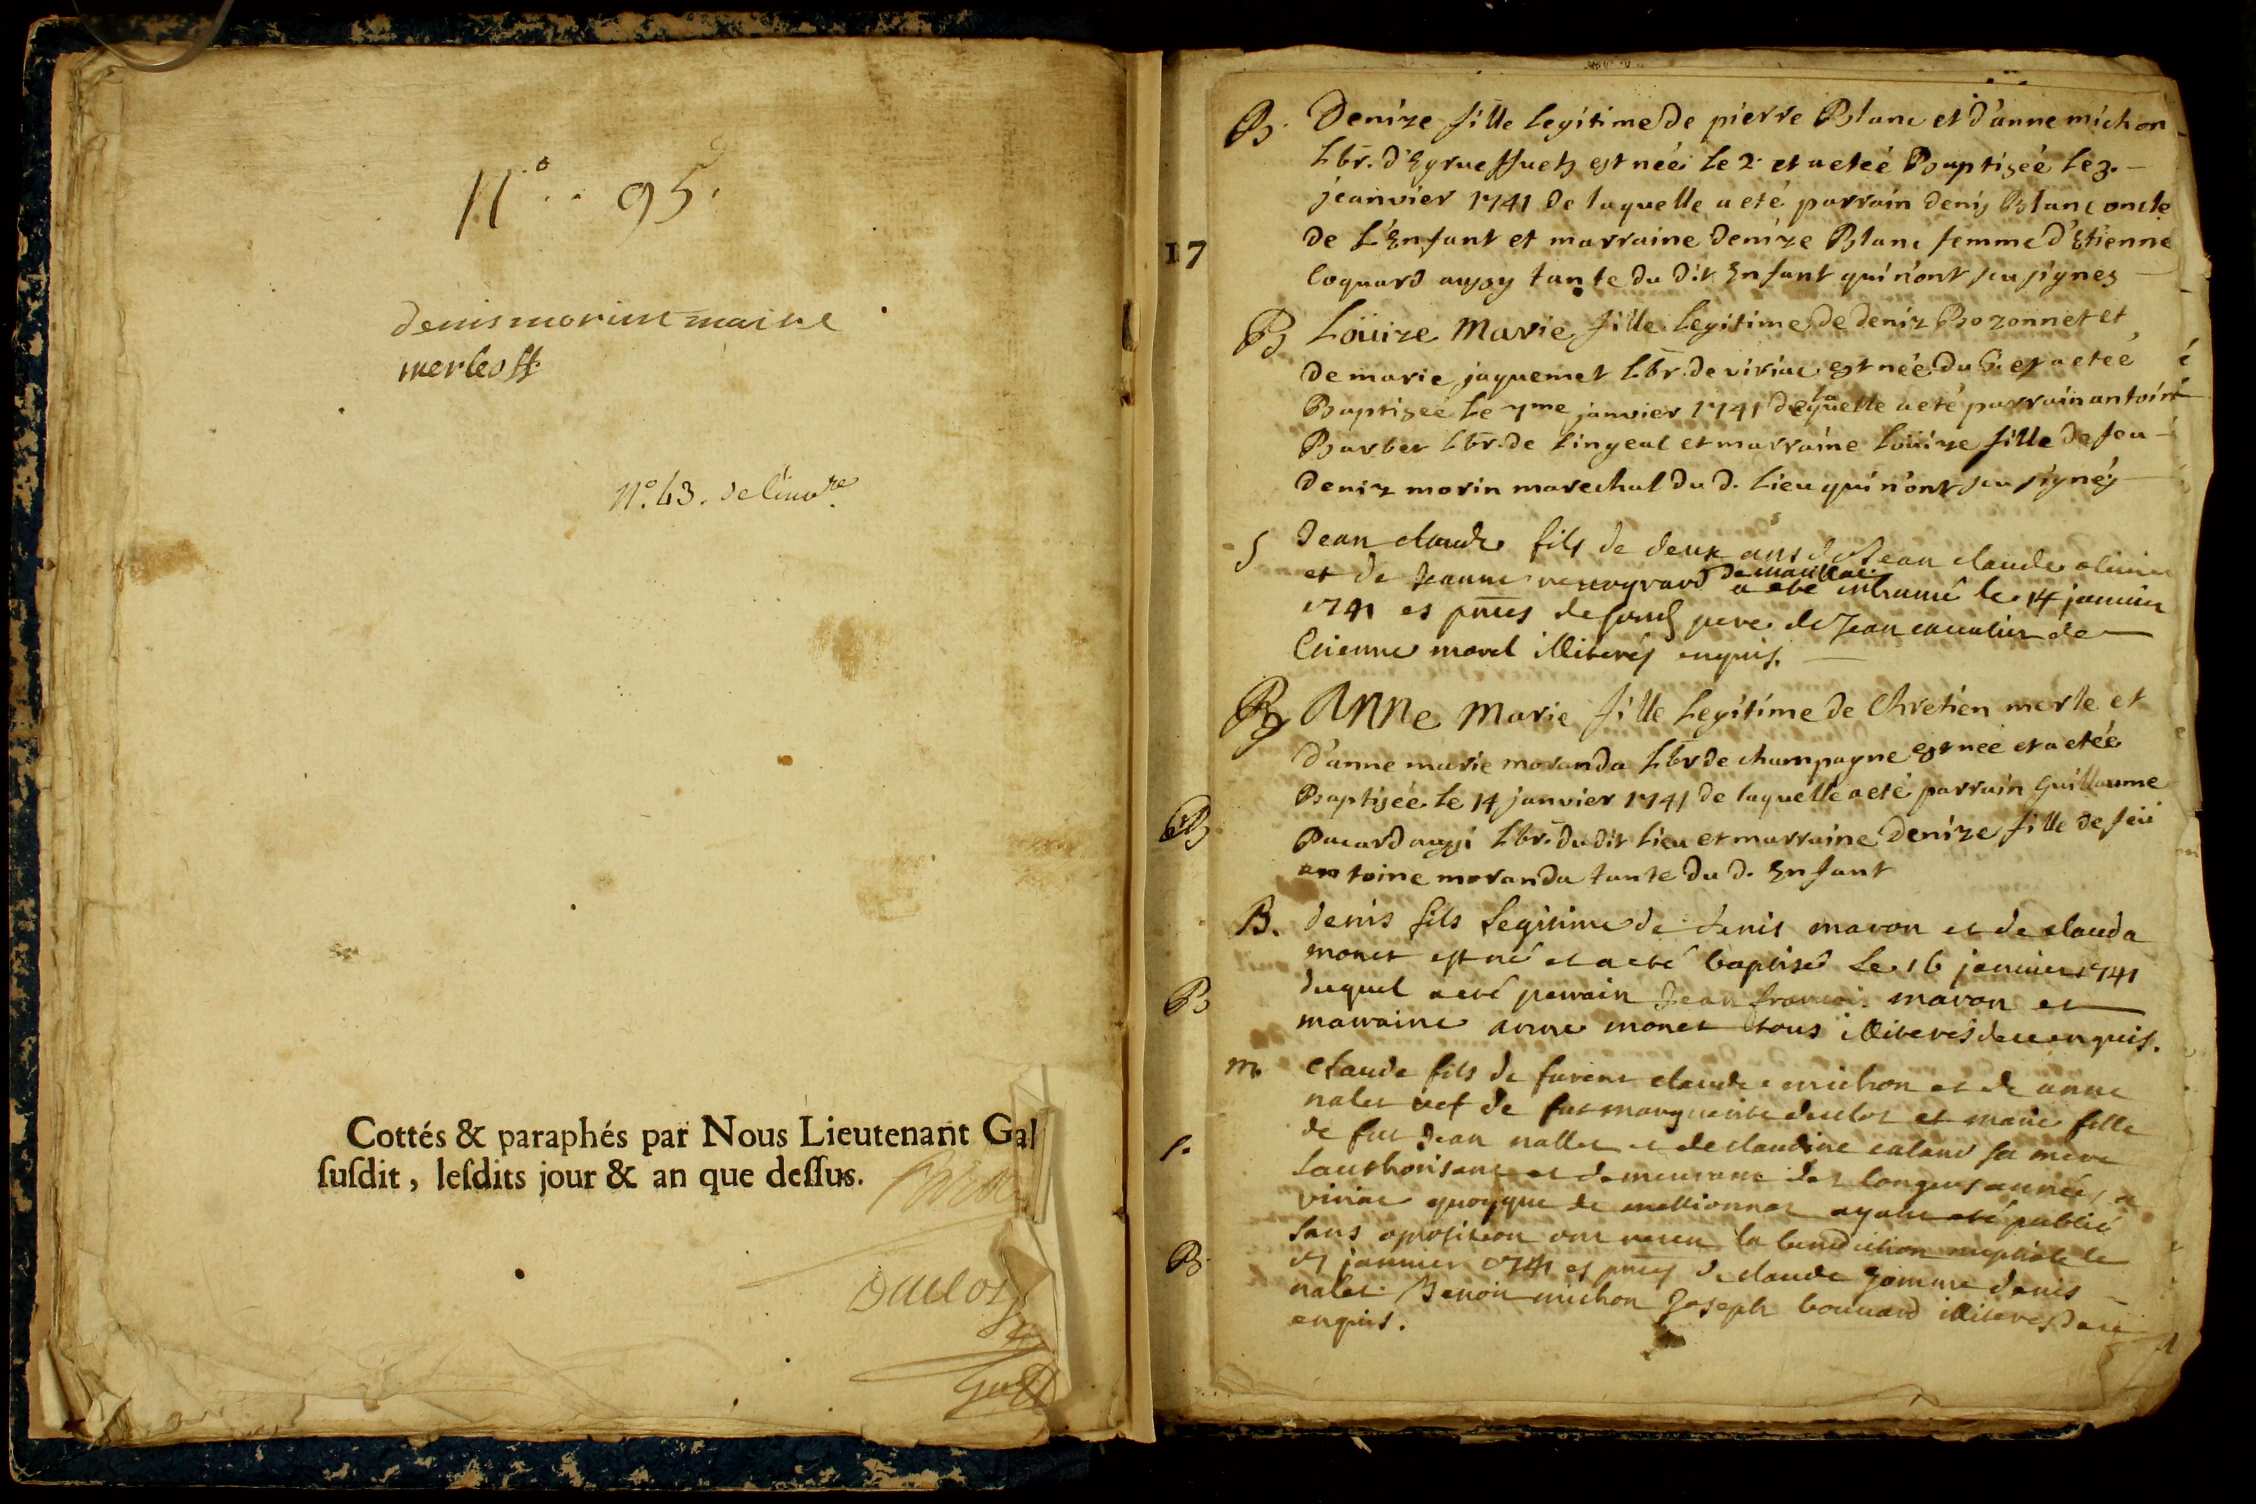 N.° 95.
denis morin maire
merle off.
N.° 43. de l'inv.re
Cottés & paraphés par Nous Lieutenant Gal
susdit, lesdits jour & an que dessus.
Duclos
17
B. Denize fille Legitime de pierre Blanc et d'anne michon
Lbr. d' est née Le 2. et a eteé Baptiseé Le 3.
jeanvier 1741 de laquelle a eté parrain denis Blanc oncle
de L'Enfant et marraine denize Blanc femme d'Etienne
Coquard aussy tante du dit Enfant qui n'ont sçu signes
B Loüize Marie fille Legitime de deniz Bozonnet et
de marie jaquemet Lbr. de viriac est née du 6. et a eteé
Baptiseé Le 7me janvier 1741 de laquelle a eté parrain antoine
Barber Lbr. de Lingeal et marraine Loüize fille de feu
deniz morin marechal du d. Lieu qui n'ont sçu signés
S Jean claude fils de deux ans de Jean claude olivier
et de Jeanne a eté inhumé le 14 janvier
1741 es pnces de son pere de Jean cavalier de
Etienne morel illiterés enquis.
B ANNe Marie fille Legitime de Chretien merle et
d'anne marie moranda Lbr de champagne est neé et a eteé
Baptiseé Le 14 janvier 1741 de laquelle a eté parrain Guillaume
Pacard aussi Lbr. du dit Lieu et marraine Denize fille de feü
antoine moranda tante du d. Enfant
B. denis fils Legitime de denis maron et de clauda
monet est né et a eté baptisé Le 16 janvier 1741
duquel a eté parrain Jean francois maron et
marraine anne monet tous illiterés de ce enquis.
B
B
m. Claude fils de furent claude michon et de anne
nalet vef de fut marguerite duclos et marie fille
de fut Jean nallet et de claudine caland sa mere
Lauthorisant et demeurant des longues années a
viriac quoyque de ayant eté publié
S.
sans oposition ont receu la benediction nuptiale le
17 janvier 1741 es pnces de claude gomme denis
nalet Benoit michon Joseph bouvard illiterés de ce
enquis.
B.